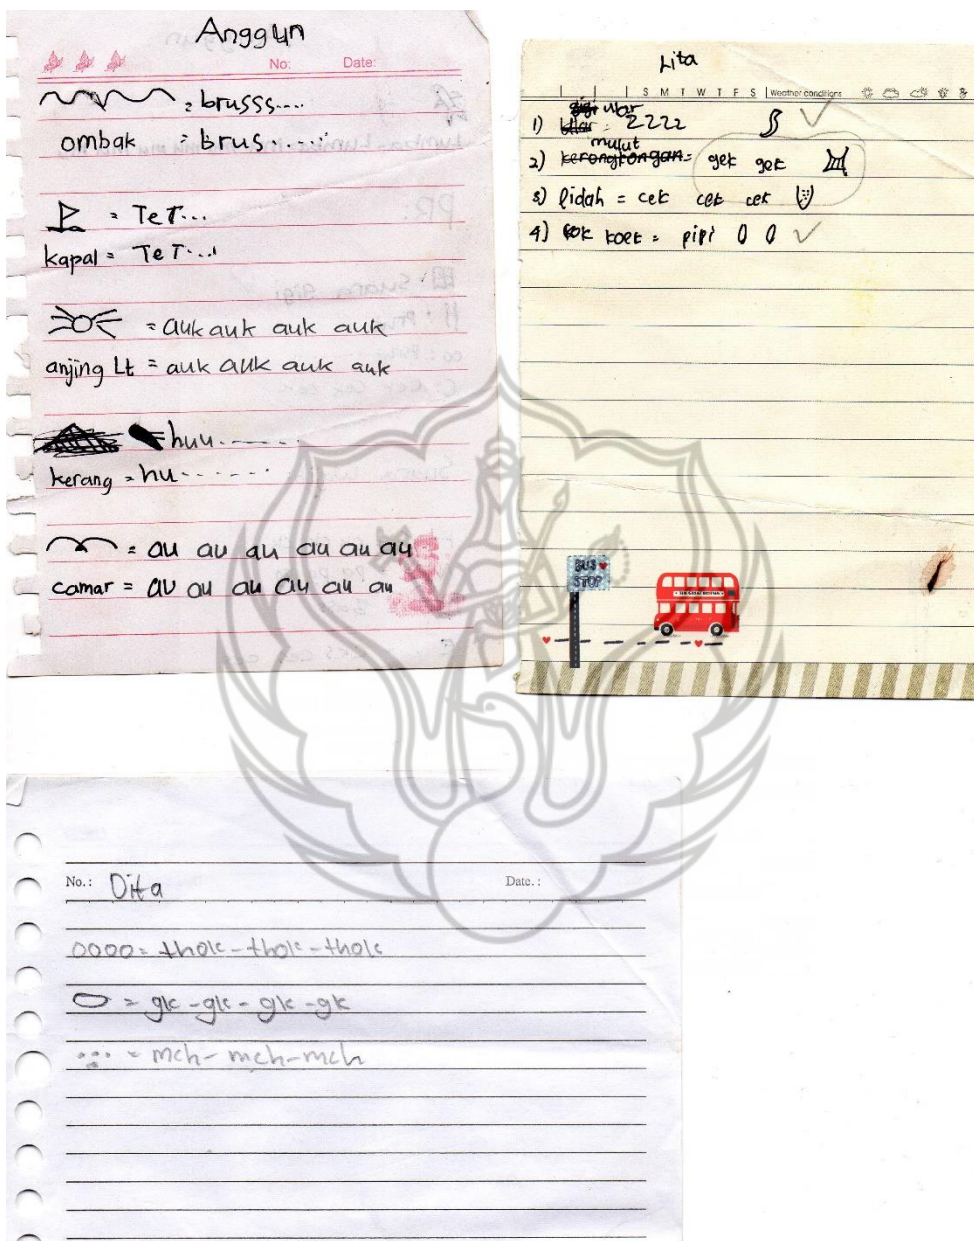 Anggun
No: Date:
= brusss....
ombak = brus......
= TeT...
kapal = TeT....
= auk auk auk auk
anjing Lt = auk auk auk auk
huu.......
kerang = hu.......
= au au au au au au
camar = au au au au au au
Lita
S M T W T F S Weather conditions
gigi ular
1) ular = zzzz
mulut
2) kerongkongan = gek gek
3) lidah = cek cek cek
4) kok koek = pipi
BUS STOP
No.: Dita Date. :
0000 = thok-thok-thok
= gk-gk-gk-gk
= mch-mch-mch